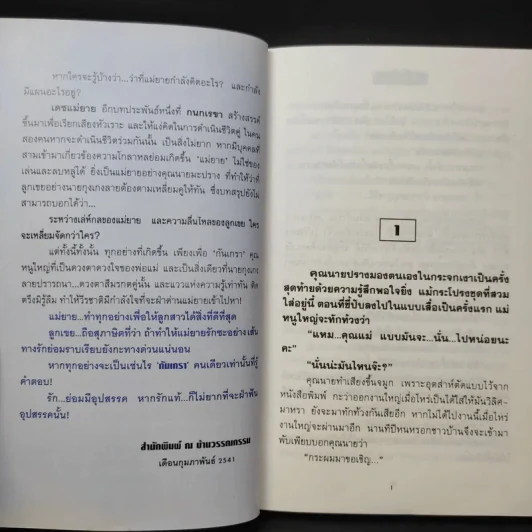 หากใครจะรู้บ้างว่า...ว่าที่แม่ยายกำลังคิดอะไร? และกำลัง
มีแผนอะไรอยู่?
เดชแม่ยาย อีกบทประพันธ์หนึ่งที่ กนกเรขา สร้างสรรค์
ขึ้นมาเพื่อเรียกเสียงหัวเราะ และให้แง่คิดในการดำเนินชีวิตคู่ ในคน
สองคนหากจะดำเนินชีวิตร่วมกันนั้น เป็นสิ่งไม่ยาก หากมีบุคคลที่
สามเข้ามาเกี่ยวข้องความโกลาหลย่อมเกิดขึ้น 'แม่ยาย' ไม่ใช่ของ
เล่นและลบหลู่ได้ ยิ่งเป็นแม่ยายอย่างคุณนายมะปราง ที่ทำให้ว่าที่
ลูกเขยอย่างนายกุงเกงลายต้องตามเหลี่ยมคูให้ทัน ซึ่งบทสรุปยังไม่
สามารถบอกได้ว่า...
ระหว่างเล่ห์กลของแม่ยาย และความลื่นไหลของลูกเขย ใคร
จะเหลี่ยมจัดกว่าใคร?
แต่ทั้งนี้ทั้งนั้น ทุกอย่างที่เกิดขึ้น เพียงเพื่อ 'กันเกรา' คุณ
หนูใหญ่ที่เป็นดวงตาดวงใจของพ่อแม่ และเป็นสิ่งเดียวที่นายกุงเกง
ลายปรารถนา...ดวงตาสีมรกตคู่นั้น และแววแห่งความรู้เท่าทัน ติด
ตรึงมิรู้ลืม ทำให้วีรชาติมีกำลังใจที่จะฝ่าด่านแม่ยายเข้าไปหา!
แม่ยาย...ทำทุกอย่างเพื่อให้ลูกสาวได้สิ่งที่ดีที่สุด
ลูกเขย...ถือสุภาษิตที่ว่า ถ้าทำให้แม่ยายรักซะอย่างเส้น
ทางรักย่อมราบเรียบยังกะทางด่วนแน่นอน
หากทุกอย่างจะเป็นเช่นไร 'กันเกรา' คนเดียวเท่านั้นที่รู้
คำตอบ!
รัก...ย่อมมีอุปสรรค หากรักแท้...ก็ไม่ยากที่จะฝ่าฟัน
อุปสรรคนั้น!
สำนักพิมพ์ ณ บ้านวรรณกรรม
เดือนกุมภาพันธ์ 2541
1
คุณนายปรางมองตนเองในกระจกเงาเป็นครั้ง
สุดท้ายด้วยความรู้สึกพอใจยิ่ง แม้กระโปรงชุดที่สวม
ใส่อยู่นี้ ตอนที่ชี้ปับลงไปในแบบเสื้อเป็นครั้งแรก แม่
หนูใหญ่จะทักท้วงว่า
"แหม...คุณแม่ แบบมันจะ...นั่น...ไปหน่อยนะ
คะ"
"นั่นน่ะมันไหนจ๊ะ?"
คุณนายทำเสียงขึ้นจมูก เพราะอุตส่าห์ตัดแบบไว้จาก
หนังสือพิมพ์ กะว่าออกงานใหญ่เมื่อไหร่เป็นได้ใส่ให้มันวิลิศ-
มาหรา ยังจะมาทักท้วงกันเสียอีก หากไม่ได้ไปงานนี้เมื่อไหร่
งานใหญ่จะผ่านมาอีก นานทีปีหนหรอกชาวบ้านจึงจะเข้ามา
พับเพียบบอกคุณนายว่า
"กระผมมาขอเชิญ..."
1